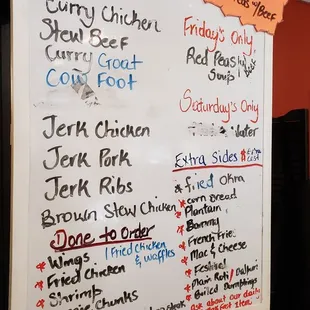 Curry Chicken
Stew Beef
Curry Goat
Cow Foot
Jerk Chicken
Jerk Pork
Jerk Ribs
Brown Stew Chicken
Done to Order
* Wings
1 Fried Chicken
& Waffles
* Fried Chicken
* Shrimp
Chunks
Peas w/ Beef
Friday's Only
Red Peas
Soup
Saturday's Only
Water
Extra Sides
* fried Okra
* Corn Bread
* Plantain
* Bammy
* French Fries
* Mac & Cheese
* Festival
* Plain Roti / Dalpuri
* Boiled Dumplings
* Ask about our daily